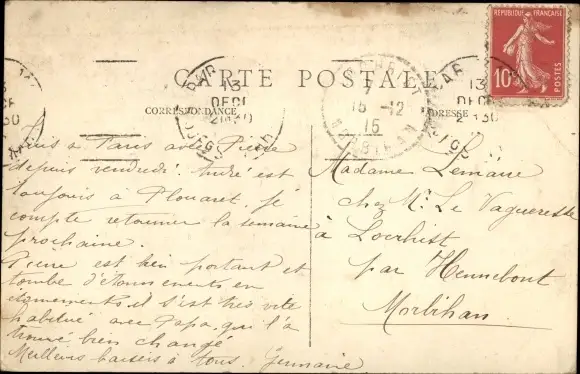 RÉPUBLIQUE FRANÇAISE
10c
POSTES
CARTE POSTALE
CORRESPONDANCE
ADRESSE
13
DEC
13
DEC
15 -12
15
Suis à Paris avec Pierre
depuis vendredi. André est
toujours à Plouaret. Je
compte retourner la semaine
prochaine.
Pierre est bien portant et
tombe d'étonnements en
étonnements, il s'est très vite
habitué avec Papa, qui l'a
trouvé bien changé
Meilleurs baisers à tous. Germaine
Madame Lemaire
chez Mr Le Vagueresse
à Locrhist
par Hennebont
Morbihan